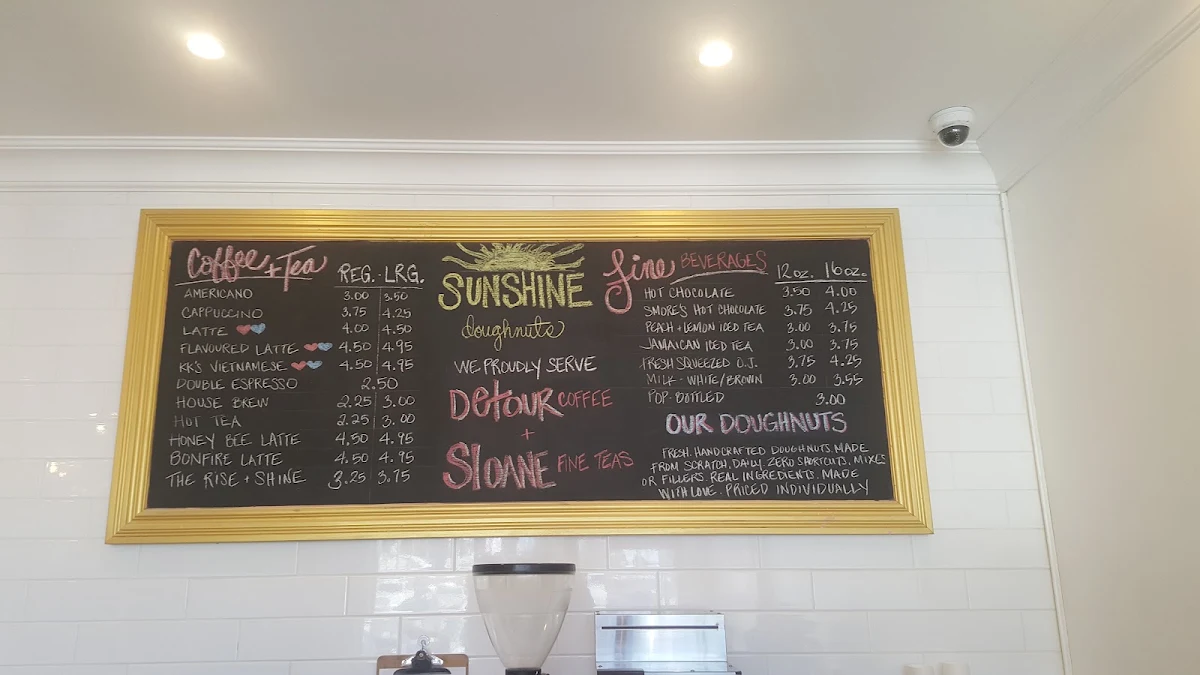 Coffee + Tea REG. LRG.
AMERICANO 3.00 3.50
CAPPUCCINO 3.75 4.25
LATTE 4.00 4.50
FLAVOURED LATTE 4.50 4.95
KK'S VIETNAMESE 4.50 4.95
DOUBLE ESPRESSO 2.50
HOUSE BREW 2.25 3.00
HOT TEA 2.25 3.00
HONEY BEE LATTE 4.50 4.95
BONFIRE LATTE 4.50 4.95
THE RISE + SHINE 3.25 3.75
SUNSHINE
doughnuts
WE PROUDLY SERVE
DETOUR COFFEE
+
SLOANE FINE TEAS
Fine BEVERAGES 12oz. 16oz.
HOT CHOCOLATE 3.50 4.00
SMORE'S HOT CHOCOLATE 3.75 4.25
PEACH + LEMON ICED TEA 3.00 3.75
JAMAICAN ICED TEA 3.00 3.75
FRESH SQUEEZED O.J. 3.75 4.25
MILK - WHITE/BROWN 3.00 3.55
POP - BOTTLED 3.00
OUR DOUGHNUTS
FRESH. HANDCRAFTED DOUGHNUTS. MADE
FROM SCRATCH, DAILY. ZERO SHORTCUTS, MIXES
OR FILLERS. REAL INGREDIENTS. MADE
WITH LOVE. PRICED INDIVIDUALLY